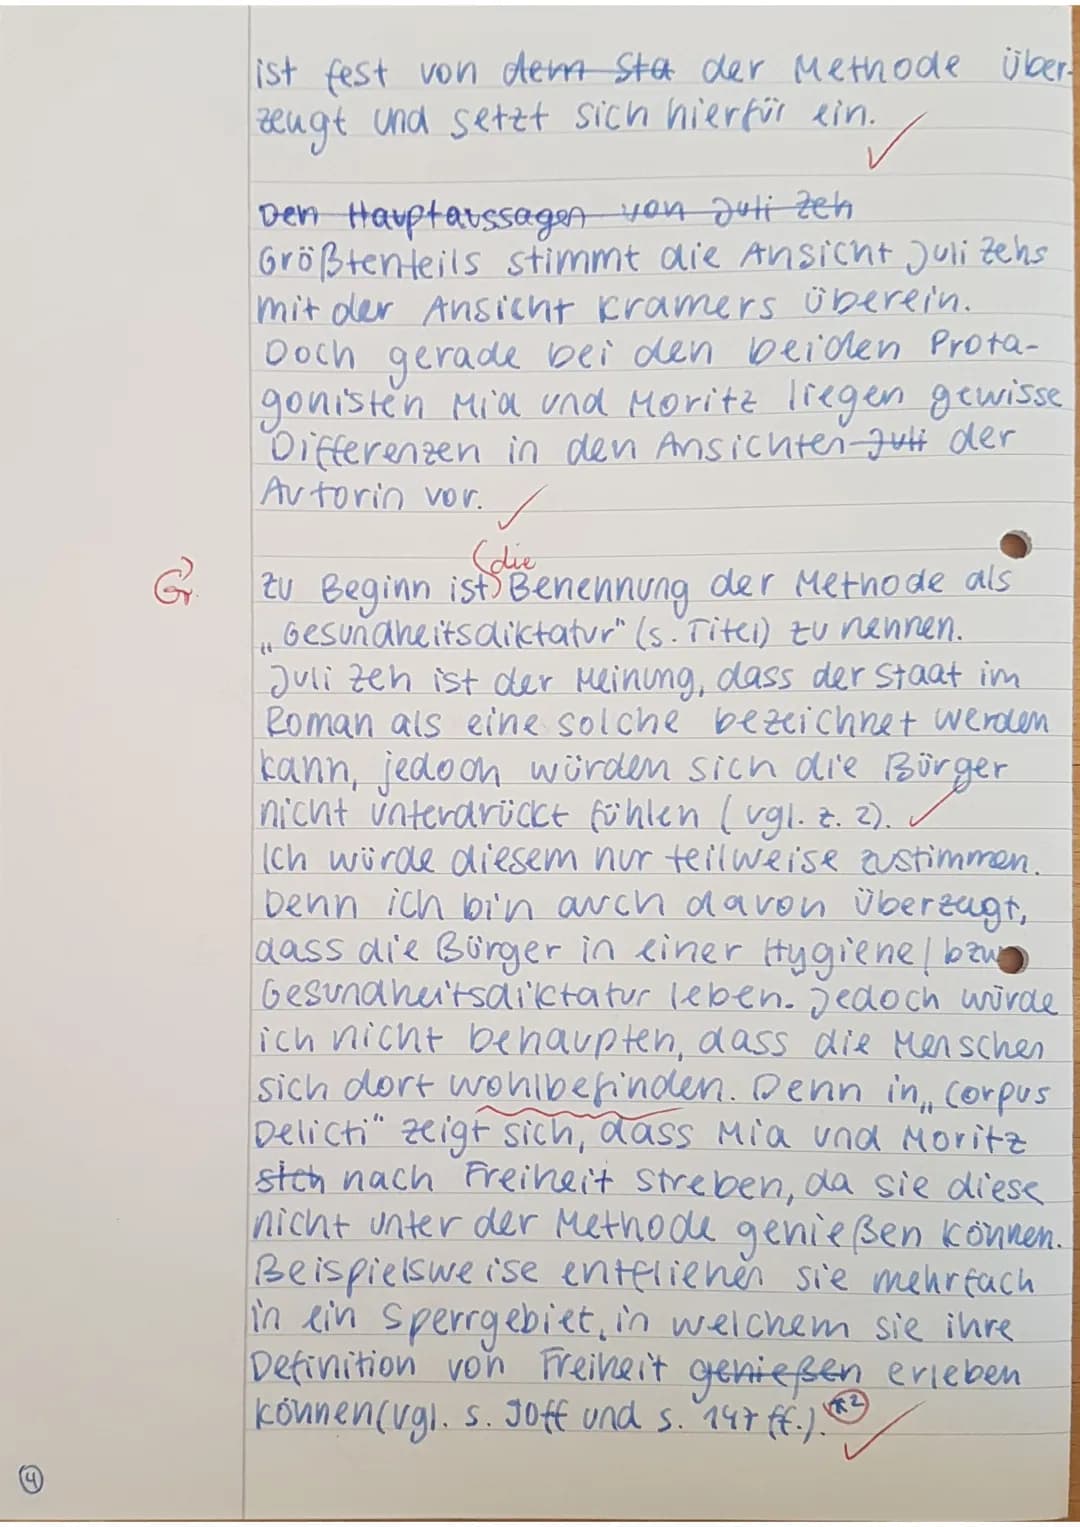 ist fest von dem Sta der Methode über-
zeugt und setzt sich hierfür ein.
Den Hauptaussagen von Juli Zeh
Größtenteils stimmt die Ansicht Juli Zehs
mit der Ansicht Kramers überein.
Doch gerade bei den beiden Prota-
gonisten Mia und Moritz liegen gewisse
Differenzen in den Ansichten Juli der
Autorin vor.
(die
Gr. Zu Beginn ist Benennung der Methode als
„Gesundheitsdiktatur" (s. Titel) zu nennen.
Juli Zeh ist der Meinung, dass der Staat im
Roman als eine solche bezeichnet werden
kann, jedoch würden sich die Bürger
nicht unterdrückt fühlen (vgl. Z. 2).
Ich würde diesem nur teilweise zustimmen.
Denn ich bin auch davon überzeugt,
dass die Bürger in einer Hygiene/ bzw
Gesundheitsdiktatur leben. Jedoch würde
ich nicht behaupten, dass die Menschen
sich dort wohlbefinden. Denn in „Corpus
Delicti" zeigt sich, dass Mia und Moritz
sich nach Freiheit streben, da sie diese
nicht unter der Methode genießen können.
Beispielsweise entfliehen sie mehrfach
in ein Sperrgebiet, in welchem sie ihre
Definition von Freiheit genießen erleben
können (vgl. S. ff und S. 147 ff.). *2
4